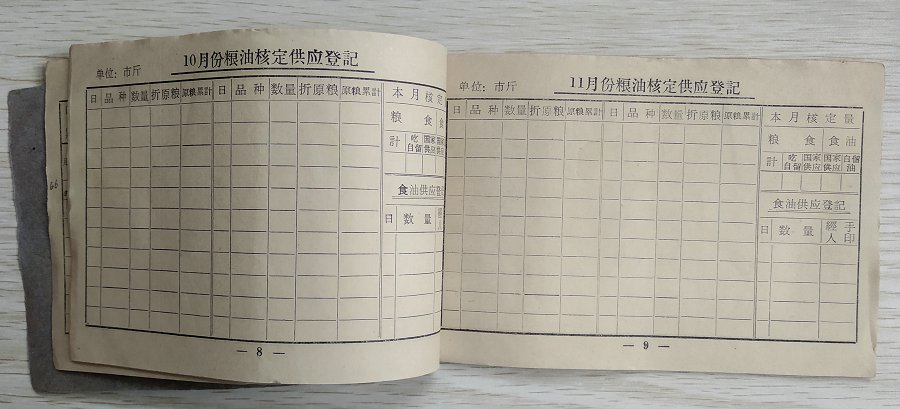 10月份粮油核定供应登記
单位：市斤
日 品种 数量 折原粮 原粮累計 日 品种 数量 折原粮 原粮累計 本月核定
粮食 食
計 吃自留 国家供应 国家供应
食油供应登
日 数量 經人
— 8 —
11月份粮油核定供应登記
单位：市斤
日 品种 数量 折原粮 原粮累計 日 品种 数量 折原粮 原粮累計 本月核定量
粮食 食油
計 吃自留 国家供应 国家供应 自留油
食油供应登記
日 数量 經手人印
— 9 —